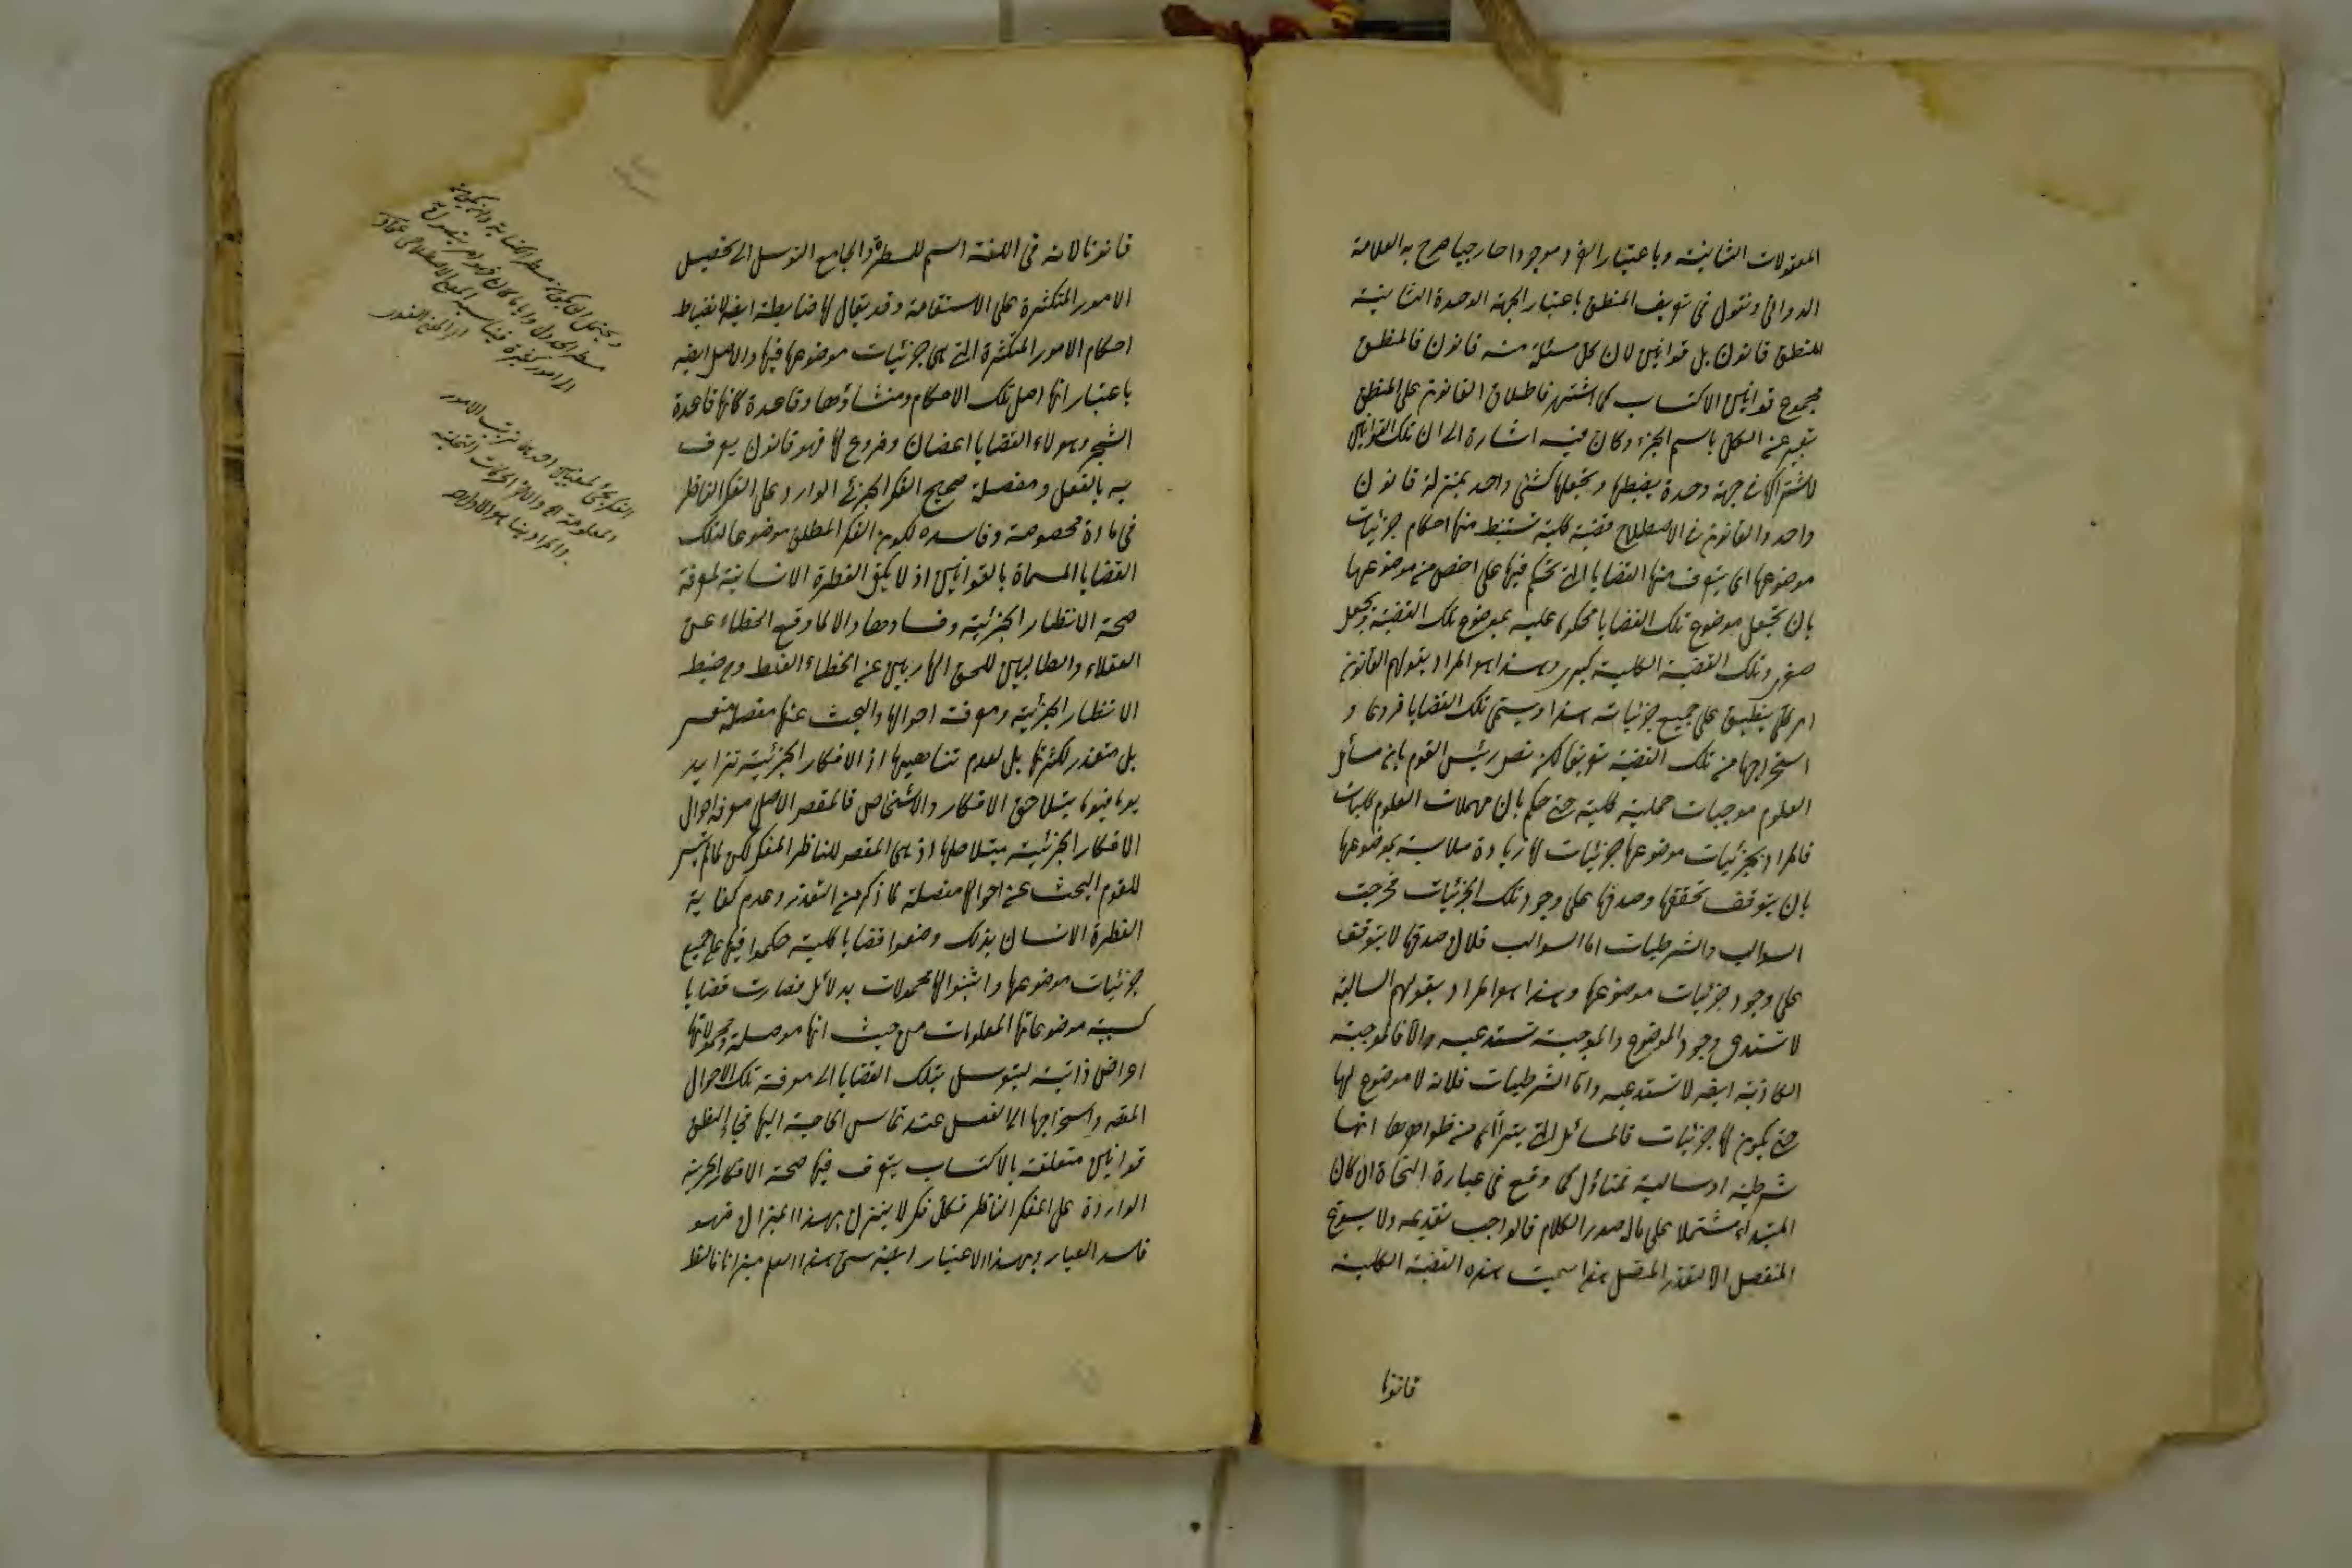 المعقولات الثانية وباعتبار الفرد موجودا خارجيا صرح به العلامة
الدواني ونقول في تعريف المنطق باعتبار الجهة الوحدة الثانية
المنطق قانون بل قوانين لان كل مسئلة منه قانون فالمنطق
مجموع قوانين الاكتساب كما اشتهر فاطلاق القانون على المنطق
تعبير عن الكل باسم الجزء وكان فيه اشارة الى ان تلك القوانين
لاشتراكها في جهة وحدة يضبطها ويجعلها كشئ واحد بمنزلة قانون
واحد والقانون في الاصطلاح قضية كلية تستنبط منها احكام جزئيات
موضوعها اى يتعرف منها القضايا التى تحكم فيها على اخص من موضوعها
بان يجعل موضوع تلك القضايا محكوما عليه بموضوع تلك القضية ويجعل
صغرى وتلك القضية الكلية كبرى وهذا هو المراد بقولهم القانون
امر كلى ينطبق على جميع جزئياته هذا ويسمى تلك القضايا فروعا و
استخراجها من تلك القضية تفريعا لكن نص رئيس القوم بان مسائل
العلوم موجبات حملية كلية حتى حكم بان مهملات العلوم كليات
فالمراد بجزئيات موضوعها جزئيات لها زيادة ملابسة بموضوعها
بان يتوقف تحققها وصدقها على وجود تلك الجزئيات فخرجت
السوالب والشرطيات اما السوالب فلان صدقها لا يتوقف
على وجود جزئيات موضوعها وهذا هو المراد بقولهم السالبة
لا تستدعى وجود الموضوع والموجبة تستدعيه والا فالموجبة
الكاذبة ايضه لا تستدعيه واما الشرطيات فلانه لا موضوع لها
حتى يكون لها جزئيات فالمسائل التى يترأاى من ظواهرها انها
شرطية او سالبة فمتاؤل كما وقع في عبارة النحاة ان كان
المبتداء مشتملا على ماله صدر الكلام فالواجب تقديمه ولا يسوغ
المنفصل الا لتعذر المتصل هذا سميت هذه القضية الكلية
قانونا
قانونا لانه فى اللغة اسم للمسطرة والجامع التوسل الى تحصيل
الامور المتكثرة على الاستقامة وقد يقال لها ضابطة ايضه لانضباط
احكام الامور المتكثرة التى هى جزئيات موضوعها فيها والاصل ايضه
باعتبار انها اصل تلك الاحكام ومنشاؤها وقاعدة كانها قاعدة
الشجر وهولاء القضايا اغصان وفروع لها فهو قانون يعرف
به بالفعل ومفصلة صحيح الفكر الجزئى الوارد على الفكر الناظر
فى مادة مخصوصة وفاسده لكون الفكر المطلق موضوعا لتلك
القضايا المسماة بالقوانين اذ لا يكفى الفطرة الانسانية لمعرفة
صحة الانظار الجزئية وفسادها والا لما وقع الخطاء عن
العقلاء والطالبين للحق الهاربين عن الخطاء الغلط ومع ضبط
الانظار الجزئية ومعرفة احوالها والبحث عنها مفصلة متعسر
بل متعذر لكثرتها بل لعدم تناهيها اذ الافكار الجزئية تتزايد
يوما فيوما بتلاحق الافكار والاشخاص فالمقصر الاصلى معرفة احوال
الافكار الجزئية اذ هى المقصر للناظر المفكر لكن لما لم يتيسر
للقوم البحث عن احوالها مفصلة لما ذكر من التعذر وعدم كفاية
الفطرة الانسان بذلك وضعوا قضايا كلية حكموا فيها على جميع
جزئيات موضوعها واثبتوا لها محمولات بدلائل فصارت قضايا
كسبية موضوعاتها المعلومات من حيث انها موصلة ومحمولاتها
اعراض ذاتية ليتوسل بتلك القضايا الى معرفة تلك الاحوال
المقصه واستخراجها الى الفعل عند تماس الحاجة اليها فجاء المنطق
قوانين متعلقة بالاكتساب يتعرف فيها صحة الافكار الجزئية
الواردة على الفكر الناظر فكل فكر لا يتزن بهذا الميزان فهو
فاسد العيار وبهذا الاعتبار ايضه سمى هذا العلم ميزانا فالنظر
الفكر يجئ لمعنيين احدهما ترتيب الامور
المعلومة اه والاخر الحركات التخيلية
والمراد هنا هو الاول